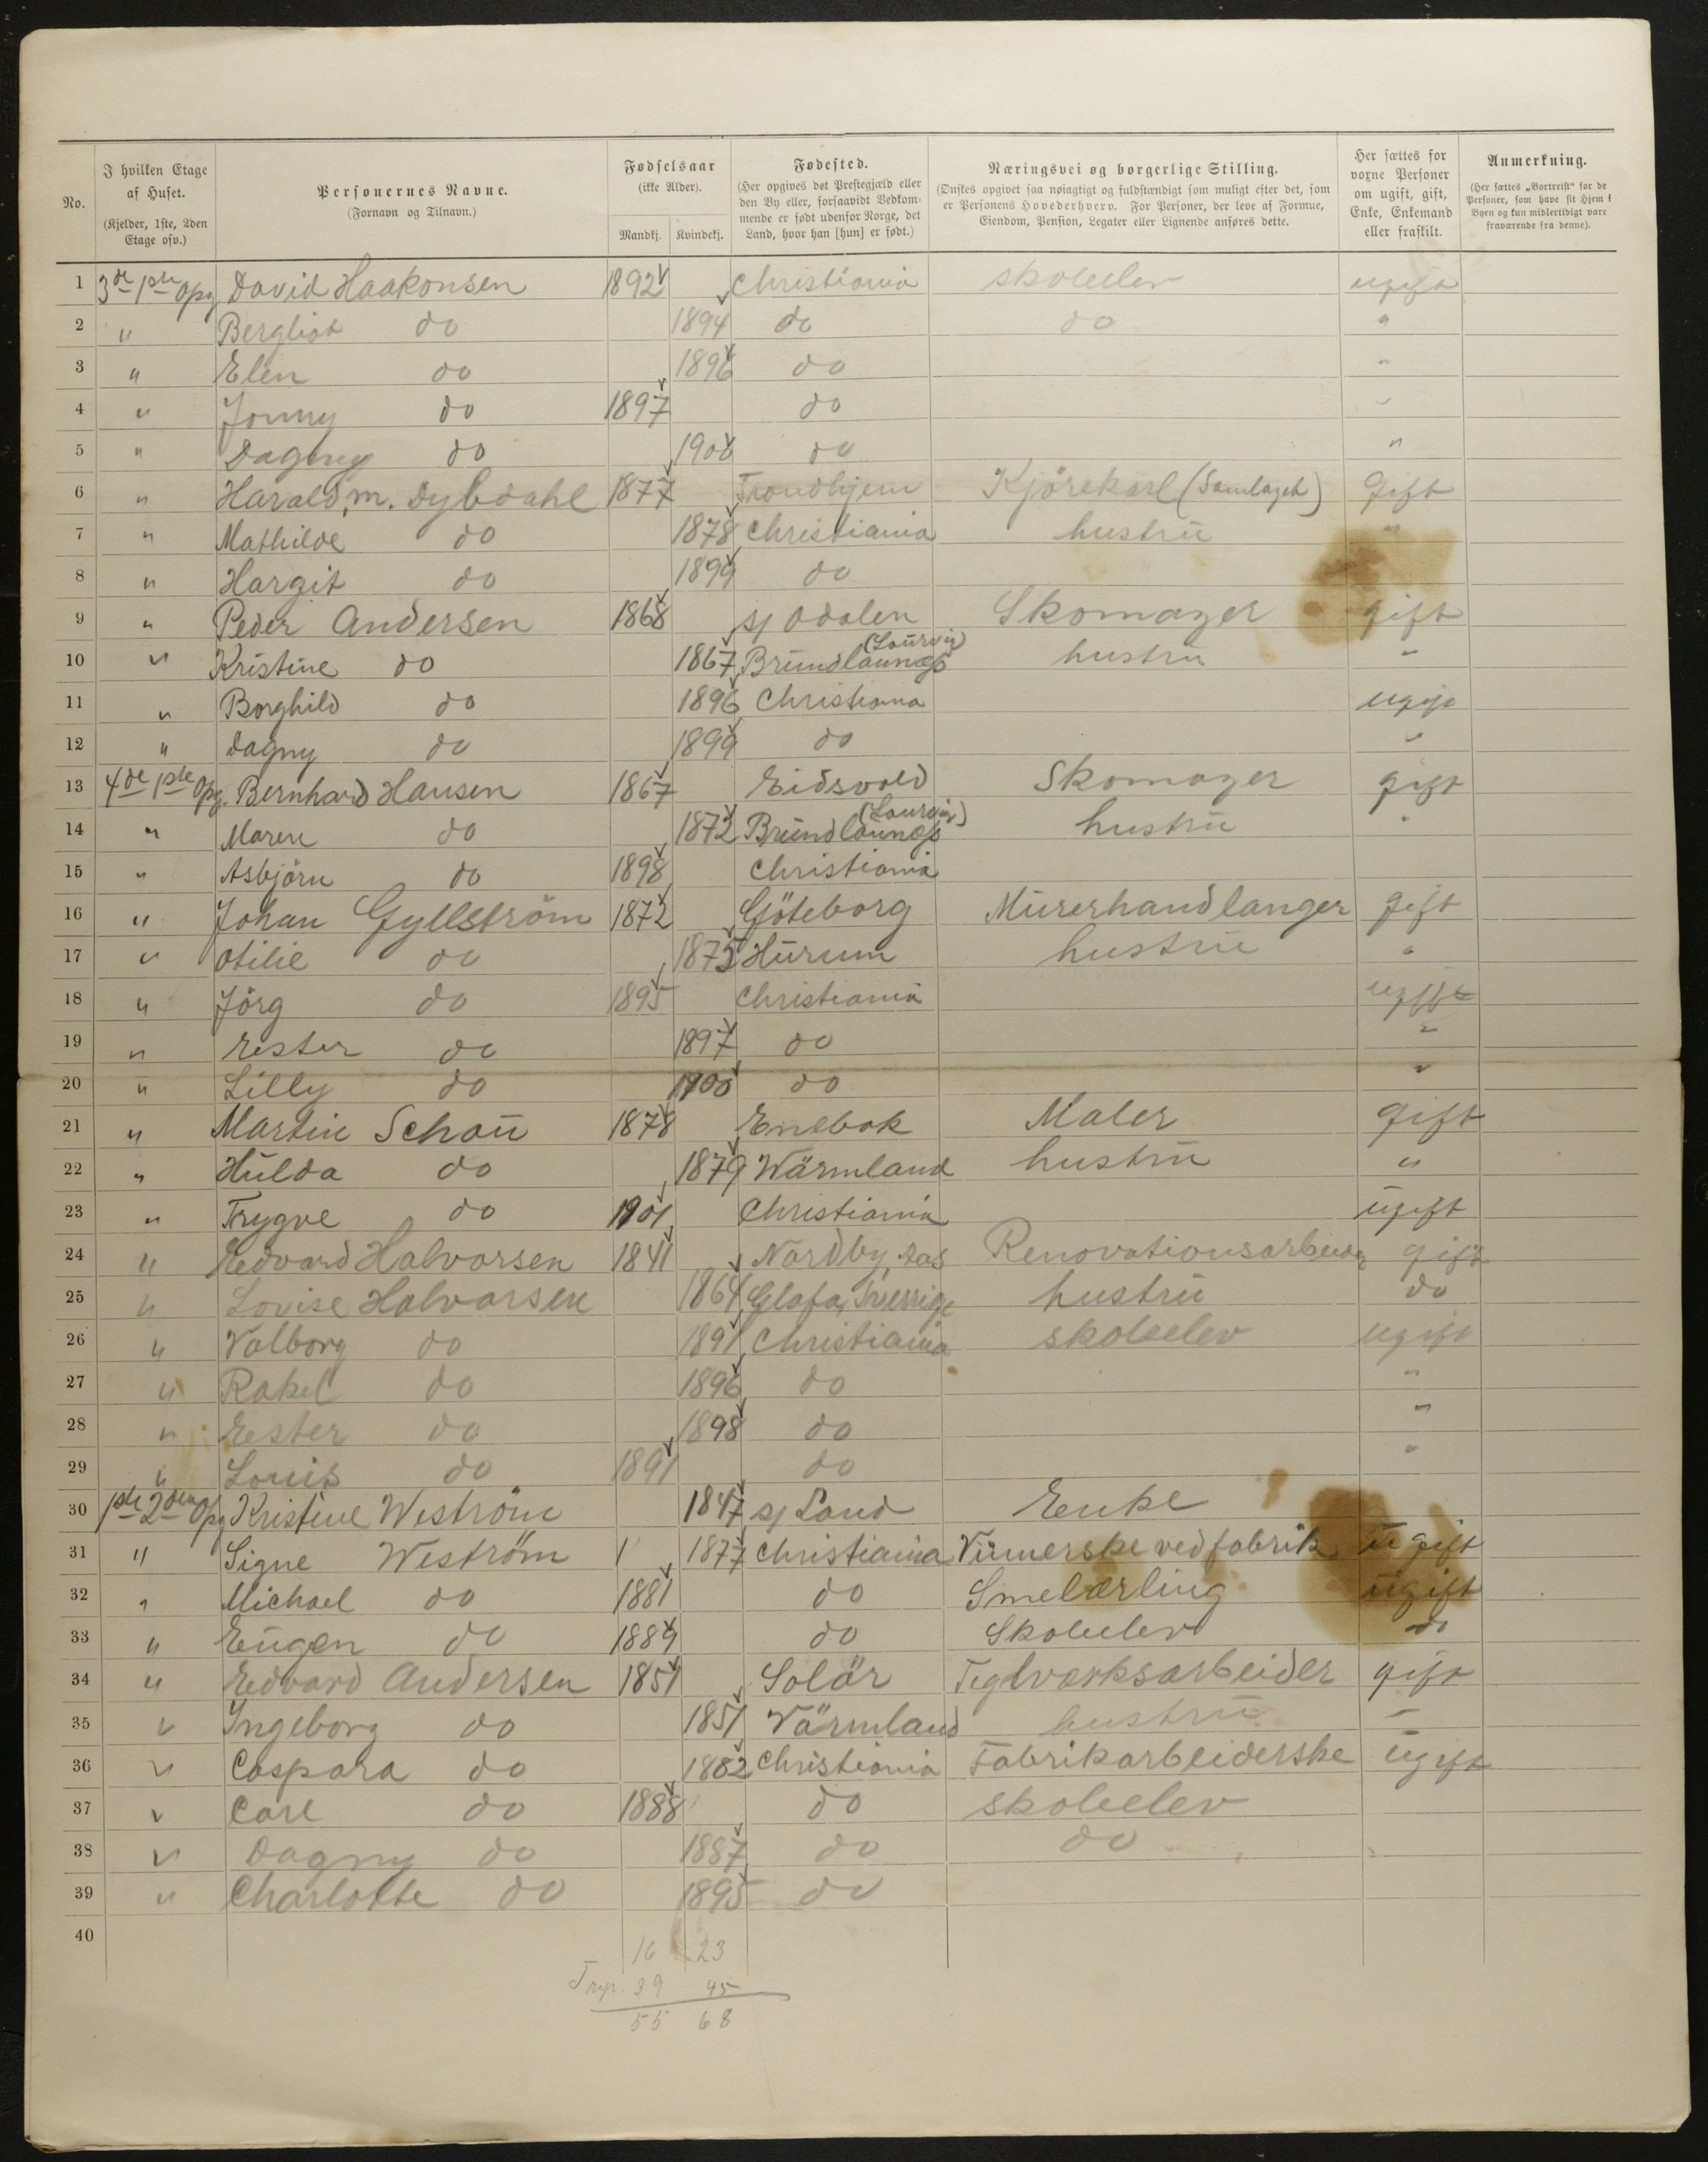 No. | I hvilken Etage af Huset. (Kjelder, 1ste, 2den Etage osv.) | Personernes Navne. (Fornavn og Tilnavn.) | Fødselsaar (ikke Alder). Mandkj. Kvindekj. | Fødested. (Her opgives det Prestegjæld eller den By eller, forsaavidt Vedkommende er født udenfor Norge, det Land, hvor han [hun] er født.) | Næringsvei og borgerlige Stilling. (Ønskes opgivet saa nøiagtigt og fuldstændigt som muligt efter det, som er Personens Hovederhverv. For Personer, der leve af Formue, Eiendom, Pension, Legater eller Lignende anføres dette. | Her sættes for voxne Personer om ugift, gift, Enke, Enkemand eller fraskilt. | Anmerkning. (Her sættes „Bortreist“ for de Personer, som have sit Hjem i Byen og kun midlertidigt vare fraværende fra denne).
1 3de 1ste Opg David Haakonsen 1892 Christiania skoleelev ugift
2 " Bergliot do 1894 do do "
3 " Elen do 1896 do "
4 " Jonny do 1897 do "
5 " Dagny do 1900 do "
6 " Harald, m. Dybdahl 1877 Trondhjem Kjörekarl (Samlaget) Gift
7 " Mathilde do 1878 Christiania hustru "
8 " Hargit do 1899 do
9 " Peder Andersen 1868 Sj Odalen Skomager gift
10 " Kristine do 1867 Brundlaunæs (Laurvig) hustru "
11 " Borghild do 1896 Christiana ugift
12 " Dagny do 1899 do "
13 4de 1ste Opg. Bernhard Hansen 1867 Eidsvold Skomager gift
14 " Maren do 1872 Brundlaunæs (Laurvig) hustru "
15 " Asbjörn do 1898 Christiania
16 " Johan Gyllström 1872 Göteborg Murerhandlanger gift
17 " Otilie do 1875 Hurum hustru "
18 " Jörg do 1895 Christiania ugift
19 " Ester do 1897 do "
20 " Lilly do 1900 do "
21 " Martin Schou 1878 Enebak Maler gift
22 " Hulda do 1879 Wärmland hustru "
23 " Trygve do 1901 Christiania ugift
24 " Edvard Halvorsen 1841 Nordby, Aas Renovationsarbeider gift
25 " Lovise Halvorsen 1864 Glafa, Sverrige hustru do
26 " Valborg do 1891 Christiania skoleelev ugift
27 " Rakel do 1896 do "
28 " Ester do 1898 do "
29 " Louis do 1891 do "
30 1ste 2den Opg Kristine Weström 1847 Sj Land Enke
31 " Signe Weström 1 1877 Christiania Vinnerske ved fabrik ugift
32 " Michael do 1881 do Smelærling ugift
33 " Eugen do 1889 do Skoleelev do
34 " Edvard Andersen 1851 Solör Teglværksarbeider gift
35 " Ingeborg do 1851 Värmland hustru "
36 " Caspara do 1882 Christiania Fabrikarbeiderske ugift
37 " Carl do 1888 do skoleelev
38 " Dagny do 1887 do do
39 " Charlotte do 1895 do
40
16 23
39 45
55 68